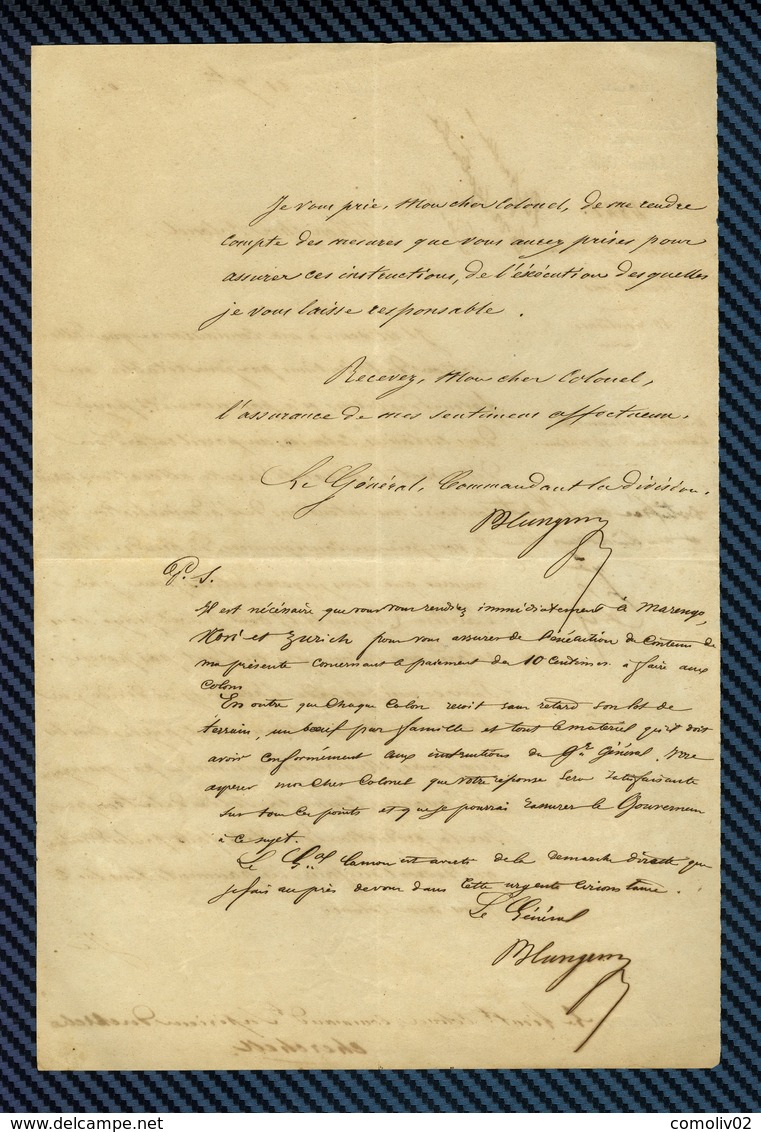 Je vous prie, Mon cher Colonel, de me rendre
compte des mesures que vous aurez prises pour
assurer ces instructions, de l'éxécution des quelles
je vous laisse responsable.
Recevez, Mon cher Colonel,
l'assurance de mes sentimens affectueux.
Le Général, Commandant la division,
P. S.
Il est nécéssaire que vous vous rendiez immédiatement à Marengo,
Novi et Zurich pour vous assurer de l'exécution du contenu de
ma présente concernant le paiement des 10 centimes à faire aux
colons
En outre que chaque colon reçoit sans retard son lot de
terrain, un bœuf par famille et tout le matériel qu'il doit
avoir conformément aux instructions du Gr. Général. J'ose
espérer mon cher Colonel que votre réponse sera satisfaisante
sur tous ces points et que je pourrai rassurer le Gouverneur
à ce sujet.
Le Gal Camou est averti de la démarche directe que
je fais auprès de vous dans cette urgente circonstance.
Le Général
Cherchell
delcampe.net
comoliv02